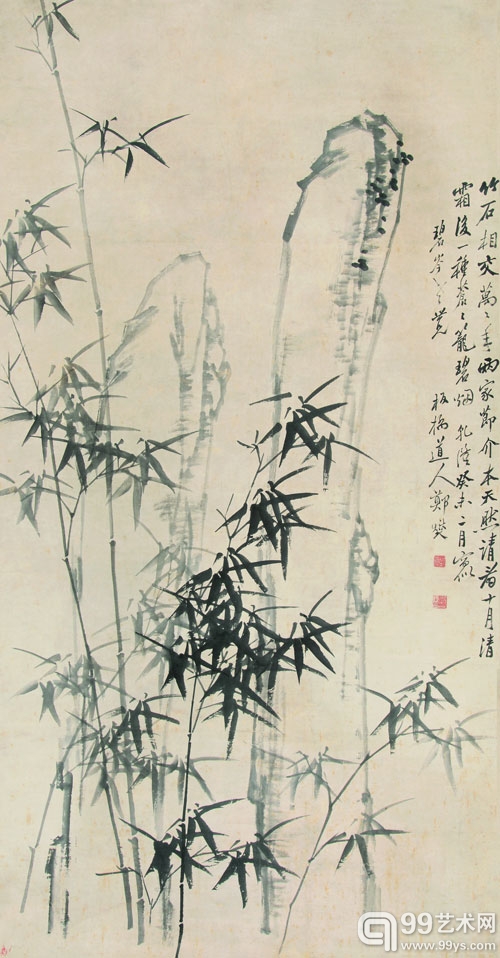 竹石相交萬〻年両家節介本天然請看十月清
霜後一種蒼〻籠碧烟乾隆癸未二月寫似
碧岑
板橋道人鄭燮
99艺术网
www.99ys.com